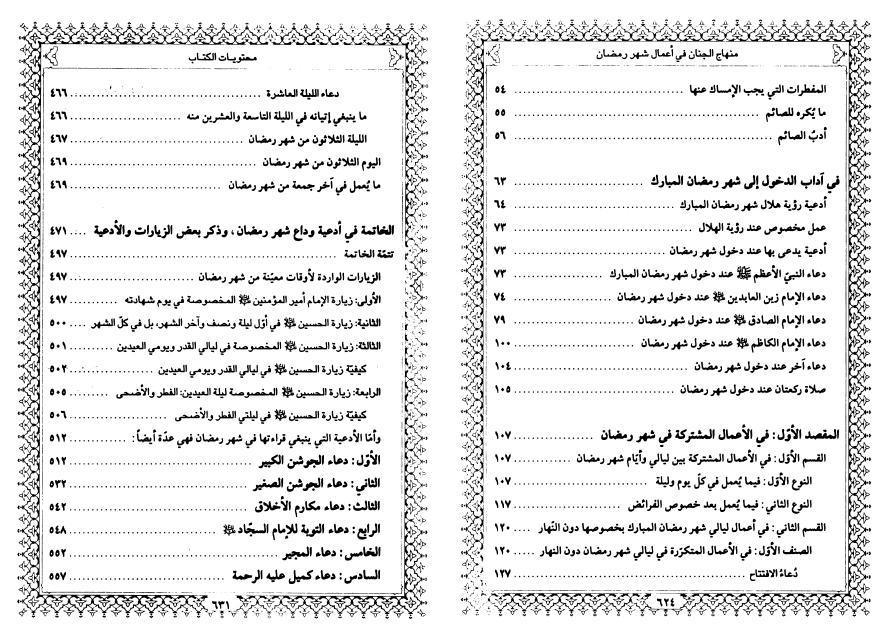 منهاج الجنان في أعمال شهر رمضان
المفطرات التي يجب الإمساك عنها ........ ٥٤
ما يُكره للصائم ........ ٥٥
أدبُ الصائم ........ ٥٦
في آداب الدخول إلى شهر رمضان المبارك ........ ٦٣
أدعية رؤية هلال شهر رمضان المبارك ........ ٦٤
عمل مخصوص عند رؤية الهلال ........ ٧٣
أدعية يدعى بها عند دخول شهر رمضان ........ ٧٣
دعاء النبيّ الأعظم ﷺ عند دخول شهر رمضان المبارك ........ ٧٣
دعاء الإمام زين العابدين عند دخول شهر رمضان ........ ٧٤
دعاء الإمام الصادق عند دخول شهر رمضان ........ ٧٩
دعاء الإمام الكاظم عند دخول شهر رمضان ........ ١٠٠
دعاء آخر عند دخول شهر رمضان ........ ١٠٤
صلاة ركعتان عند دخول شهر رمضان ........ ١٠٥
المقصد الأوّل: في الأعمال المشتركة في شهر رمضان ........ ١٠٧
القسم الأوّل: في الأعمال المشتركة بين ليالي وأيّام شهر رمضان ........ ١٠٧
النوع الأوّل: فيما يُعمل في كلّ يوم وليلة ........ ١٠٧
النوع الثاني: فيما يُعمل بعد خصوص الفرائض ........ ١١٧
القسم الثاني: في أعمال ليالي شهر رمضان المبارك بخصوصها دون النّهار ........ ١٢٠
الصنف الأوّل: في الأعمال المتكرّرة في ليالي شهر رمضان دون النهار ........ ١٢٠
دُعاءُ الافتتاح ........ ١٢٧
٦٢٤
محتويات الكتاب
دعاء الليلة العاشرة ........ ٤٦٦
ما ينبغي إتيانه في الليلة التاسعة والعشرين منه ........ ٤٦٦
الليلة الثلاثون من شهر رمضان ........ ٤٦٧
اليوم الثلاثون من شهر رمضان ........ ٤٦٩
ما يُعمل في آخر جمعة من شهر رمضان ........ ٤٦٩
الخاتمة في أدعية وداع شهر رمضان، وذكر بعض الزيارات والأدعية .... ٤٧١
تتمّة الخاتمة ........ ٤٩٧
الزيارات الواردة لأوقات معيّنة من شهر رمضان ........ ٤٩٧
الأولى: زيارة الإمام أمير المؤمنين المخصوصة في يوم شهادته ........ ٤٩٧
الثانية: زيارة الحسين في أوّل ليلة ونصف وآخر الشهر، بل في كلّ الشهر ٥٠٠
الثالثة: زيارة الحسين المخصوصة في ليالي القدر ويومي العيدين ........ ٥٠١
كيفيّة زيارة الحسين في ليالي القدر ويومي العيدين ........ ٥٠٢
الرابعة: زيارة الحسين المخصوصة ليلة العيدين: الفطر والأضحى ........ ٥٠٥
كيفيّة زيارة الحسين في ليلتي الفطر والأضحى ........ ٥٠٦
وأمّا الأدعية التي ينبغي قراءتها في شهر رمضان فهي عدّة أيضاً: ........ ٥١٢
الأوّل: دعاء الجوشن الكبير ........ ٥١٢
الثاني: دعاء الجوشن الصغير ........ ٥٣٢
الثالث: دعاء مكارم الأخلاق ........ ٥٤٢
الرابع: دعاء التوبة للإمام السجّاد ........ ٥٤٨
الخامس: دعاء المجير ........ ٥٥٢
السادس: دعاء كميل عليه الرحمة ........ ٥٥٧
٦٣١